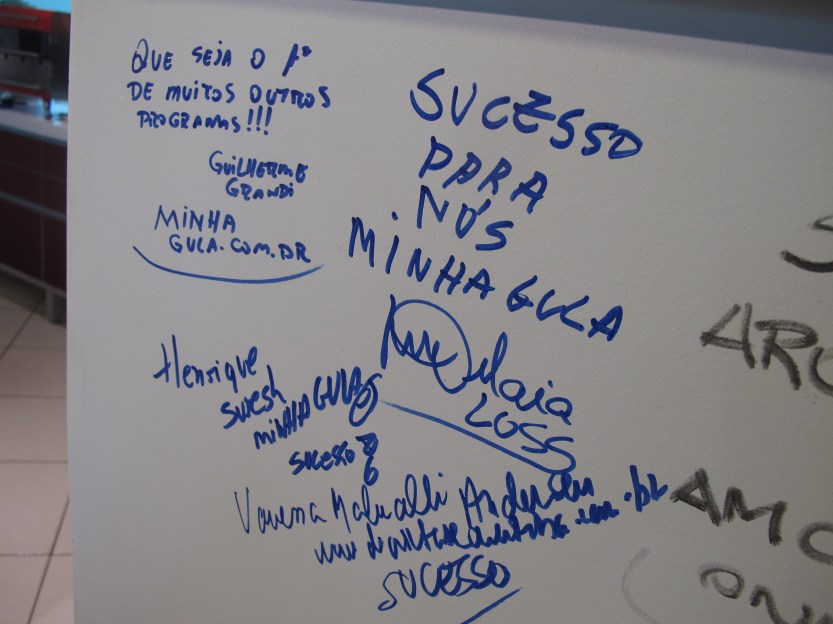 QUE SEJA O 1º
DE MUITOS OUTROS
PROGRAMAS!!!
GUILHERME
GRANDI
MINHA
GULA.COM.BR
SUCESSO
PARA
NÓS
MINHA GULA
Maia
LOSS
Henrique
MINHA GULA
SUCESSO
Vanessa
SUCESSO
ARO
AMO